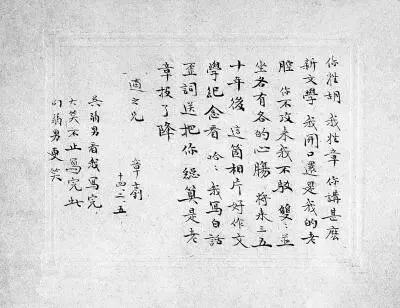 你姓胡 我姓章 你講甚麽
新文學 我開口還是我的老
腔 你不攻來我不駁 雙〻並
坐各有各的心腸 將來三五
十年後 這箇相片好作文
學紀念看 哈〻我寫白話
歪詞送把你總算是老
章投了降
適之兄
章釗
十四二五
吳弱男看我寫完
大笑不止寫完此
行弱男更笑